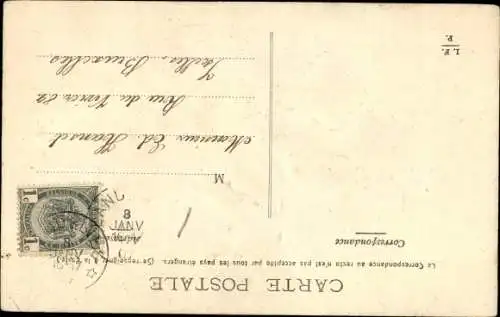 CARTE POSTALE
La Correspondance au recto n'est pas acceptée par tous les pays étrangers. (Se renseigner à la Poste)
Correspondance
M
Ed. Hansel
Rue du Vivier 82
Ixelles, Bruxelles
I. F.
P.
8
JANV
1c 1c